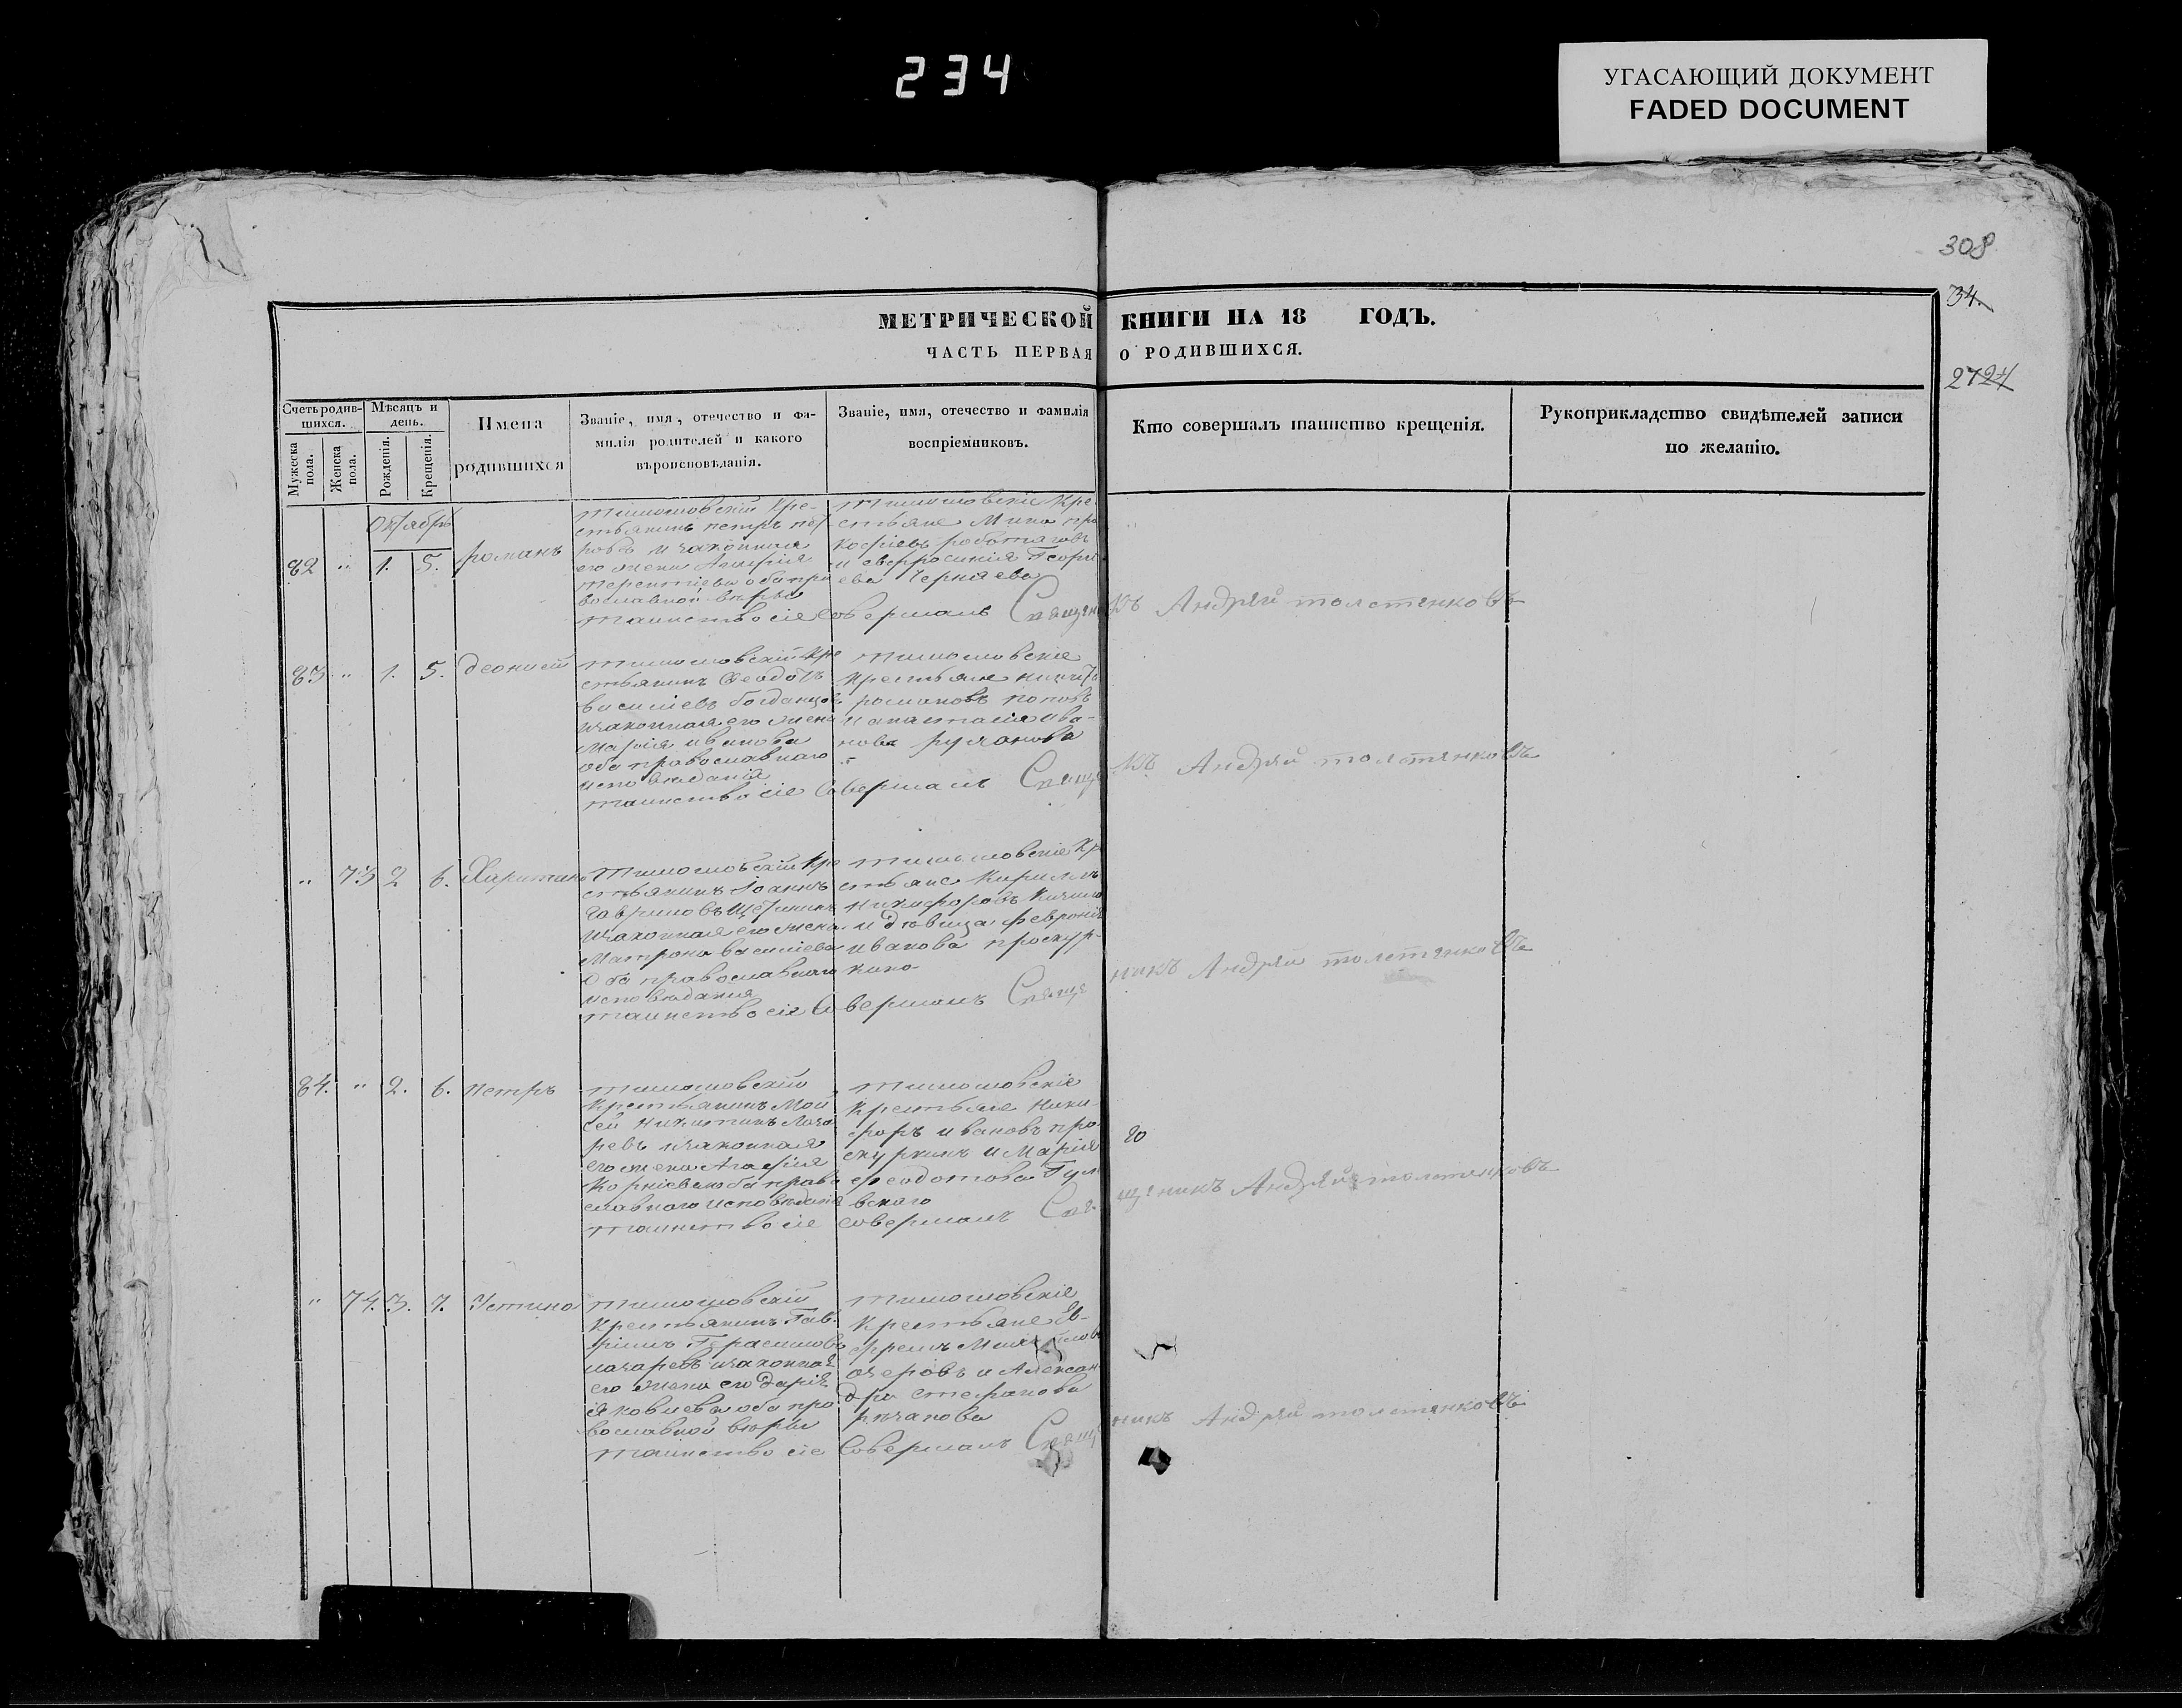 234
УГАСАЮЩИЙ ДОКУМЕНТ
FADED DOCUMENT
308
734.
2724
МЕТРИЧЕСКОЙ КНИГИ НА 18 ГОДЪ.
ЧАСТЬ ПЕРВАЯ О РОДИВШИХСЯ.
Счетъ родив-
шихся.
Мужеска пола.
Женска пола.
Мѣсяцъ и
день.
Рожденія.
Крещенія.
Имена
родившихся
Званіе, имя, отечество и фа-
милія родителей и какого
вѣроисповѣданія.
Званіе, имя, отечество и фамилія
воспріемниковъ.
Кто совершалъ таинство крещенія.
Рукоприкладство свидѣтелей записи
по желанію.
Октябрь
82 " 1. 5. романъ
Тимошовскій Кре-
стьянинъ петръ
ровъ и законная
его жена
терентіева оба пра
вославной вѣры
Тимошовскіе Кре
стьяне Мина про
кофіевъ
и евфросинія Георгі
ева Черняева
таинство сіе Совершалъ Священ къ Андрей толстенковъ
83 " 1. 5. деонисій
тимошовскій Кре
стьянинъ Феодотъ
василіевъ богданцовъ
изаконная его жена
Марія иванова
оба православнаго
исповѣданія
тимошовскіе
Крестьяне
романовъ поповъ
и анастасія ива-
нова русанова
таинство сіе Совершалъ Свяще къ Андрей толстенковъ
" 73 2 6. Харитина
Тимошовскій Кре
стьянинъ Іоаннъ
Гавриловъ Щетининъ
изаконная его жена
Матрона василіева
Оба православнаго
исповѣданія
тимошовскіе Кр
стьяне Кирилъ
Никифоровъ
и дѣвица Февронія
иванова проскур-
кина
таинство сіе Совершалъ Свяще никъ Андрей толстенковъ
84. " 2. 6. петръ
тимошовскій
Крестьянинъ Мои
сей Никитинъ Лаза
ревъ изаконная
его жена Агафия
Корніева оба право
славнаго исповѣданія
тимошовскіе
Крестьяне Ники
форъ ивановъ про
скуркинъ и Марія
феодотова Гул
вскаго
таинство сіе Совершалъ Свя щеникъ Андрей толстенковъ
" 74. 3. 7. Устина
тимошовскій
Крестьянинъ Гав-
ріилъ Герасимовъ
лазаревъ изаконная
его жена его Дарія
яковлева оба пра
вославной вѣры
тимошовскіе
Крестьяне Ев-
фремъ Михайловъ
озеровъ и Алексан
дра стефанова
рѣзанова
таинство сіе Совершалъ Свяще никъ Андрей толстенковъ